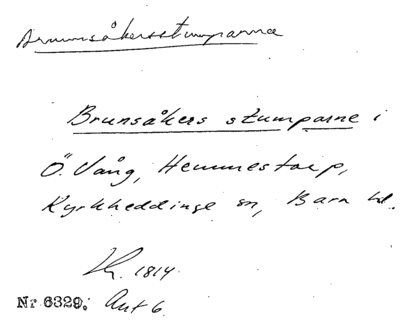 Brunsåkersstumparna
Brunsåkers stumparne i
Ö. Vång, Hemmestorp,
Kyrkheddinge sn, Bara hd.
1814.
Nr 6329. Akt 6